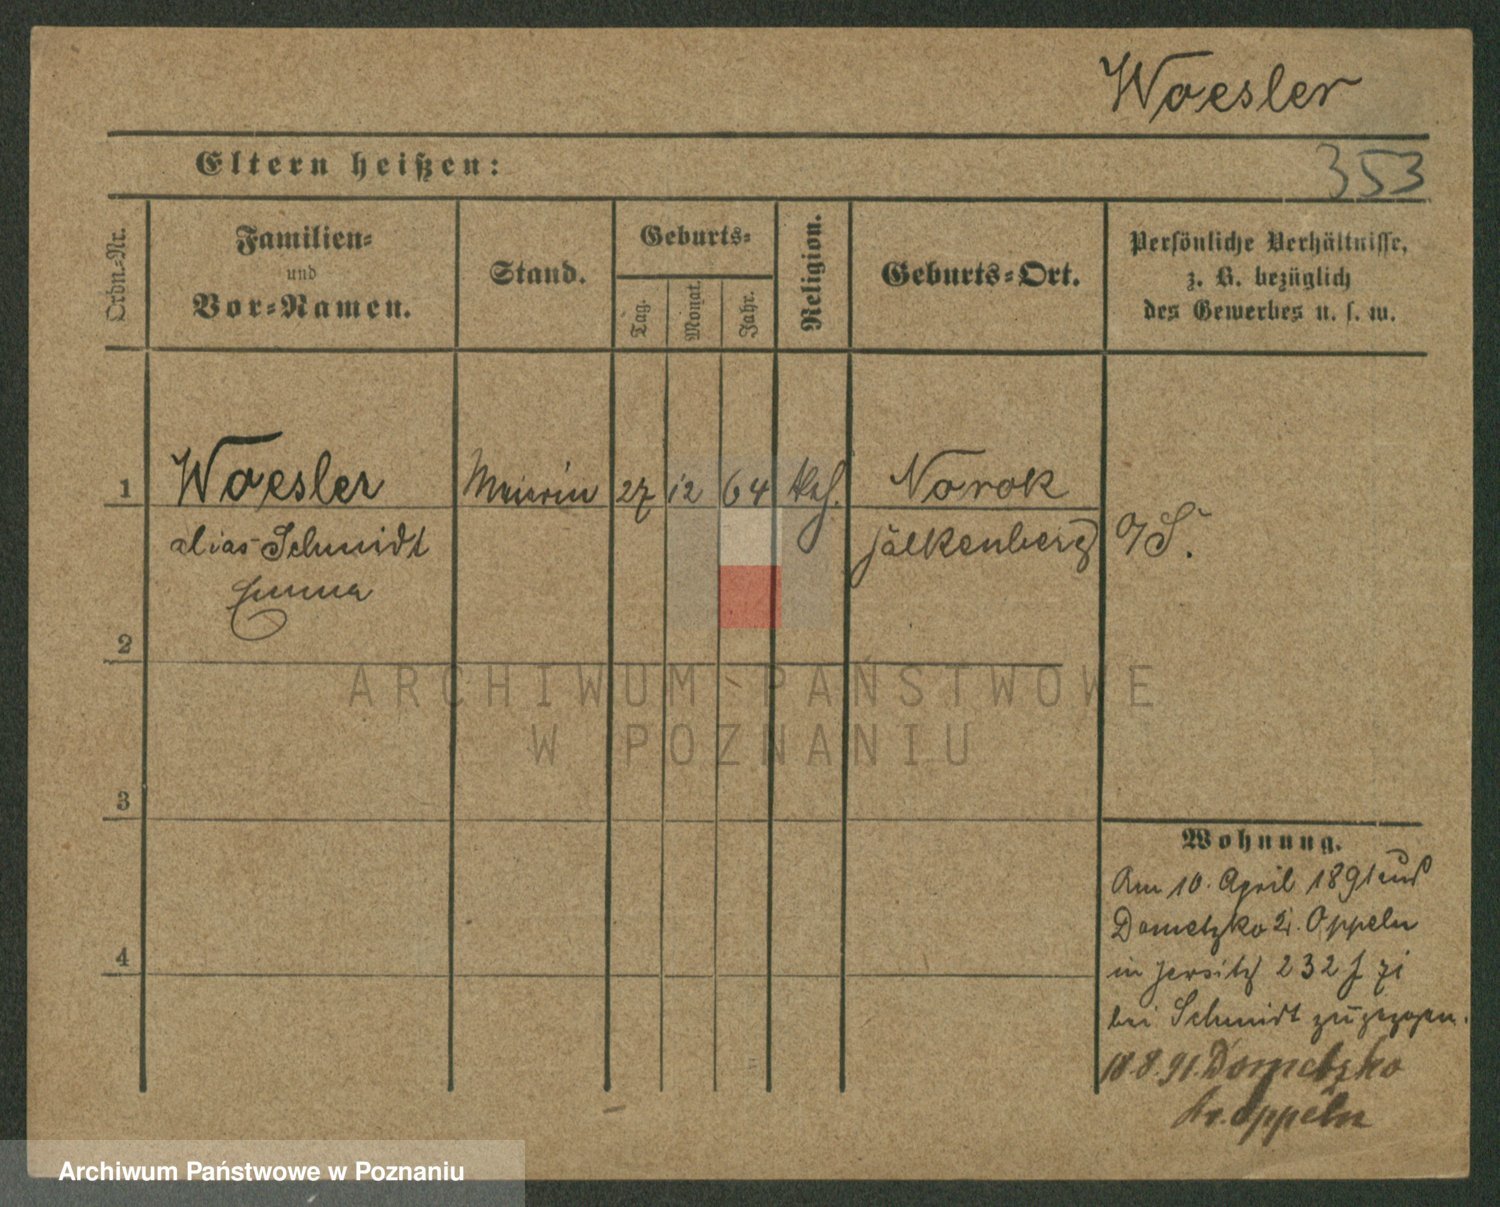 Woesler
Eltern heißen:
353
Ordn.-Nr.
Familien-
und
Vor-Namen.
Stand.
Geburts-
Tag.
Monat.
Jahr.
Religion.
Geburts-Ort.
Persönliche Verhältnisse,
z. B. bezüglich
des Gewerbes u. s. w.
1
Woesler
27
12
64
Norok
alias Schmidt
Falkenberg
O/S.
Emma
2
ARCHIWUM PAŃSTWOWE
W POZNANIU
3
Wohnung.
Am 10. April 1891 aus
Dometzko Kr. Oppeln
in Jersitz 232
bei Schmidt zugezogen.
18.8.91. Dometzko
Kr. Oppeln
4
Archiwum Państwowe w Poznaniu